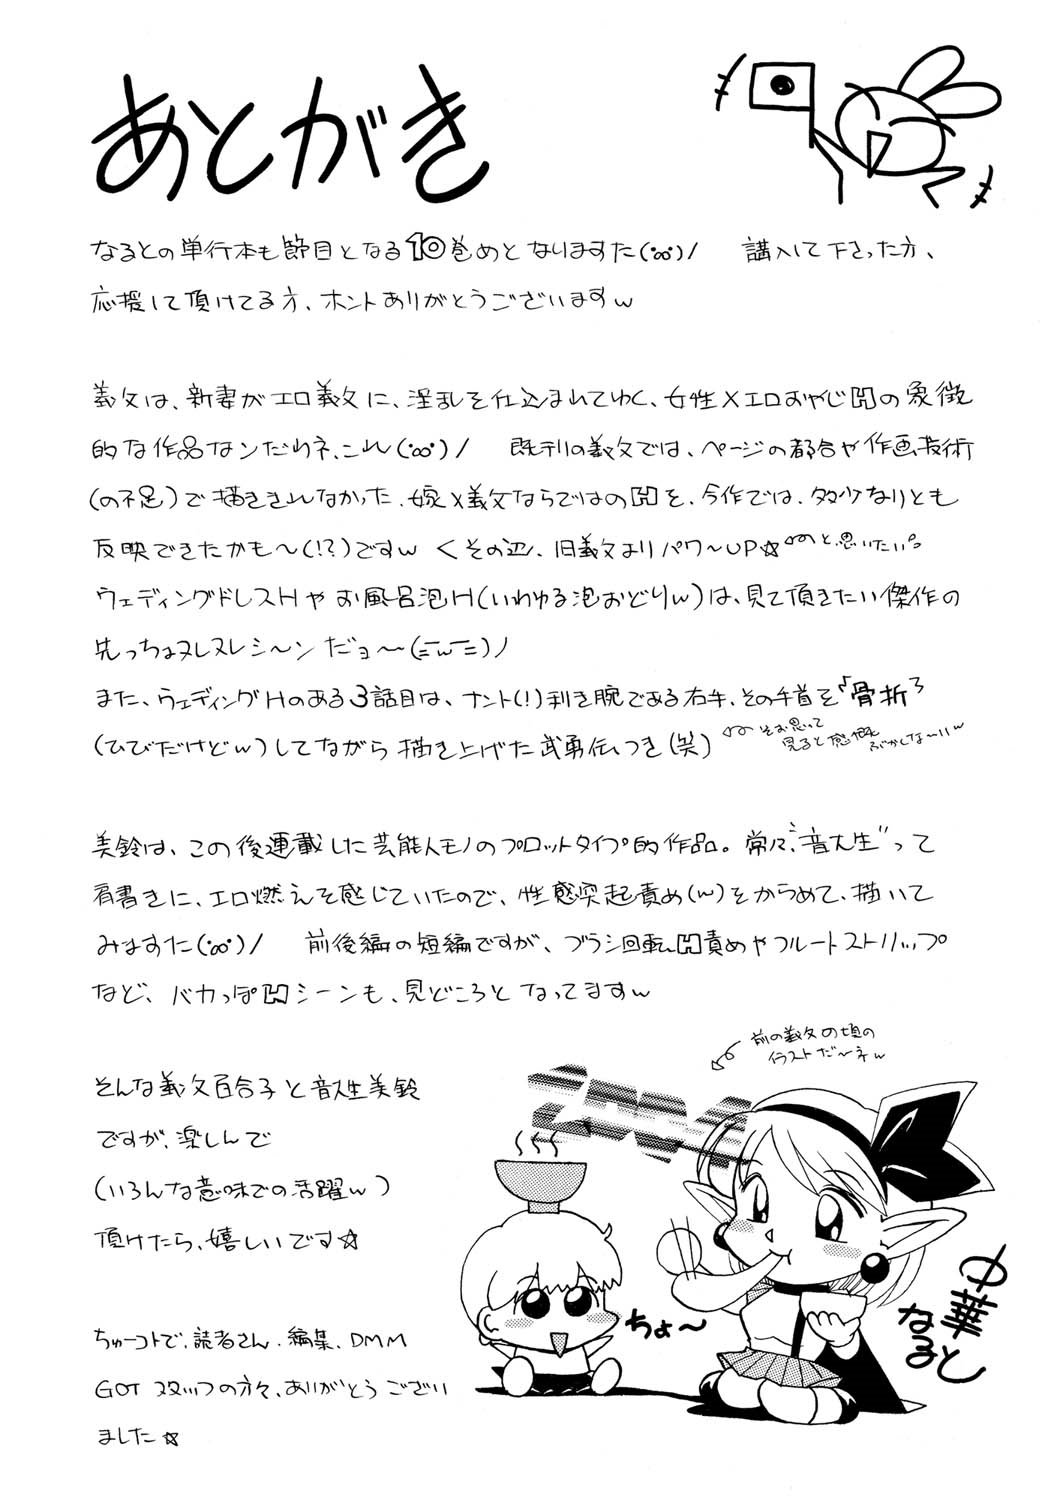 あとがき
なるとの単行本も節目となる10巻めとなりますた(°∞°)/ 講入して下さった方、
応援して頂けてる方、ホントありがとうございますw
義父は、新妻がエロ義父に、淫乱を仕込まれてゆく、女性×エロおやじHの象徴
的な作品なンだわネ、これ(°∞°)/ 既刊の義父では、ページの都合や作画技術
(の不足)で描ききれなかった、嫁×義父ならではのHを、今作では、多少なりとも
反映できたかも〜(!?)ですw くその辺、旧義父よりパワ〜UP☆ と思いたい。
ウェディングドレスHやお風呂泡H(いわゆる泡おどりw)は、見て頂きたい傑作の
先っちょヌレヌレシ〜ンだョ〜(=w=)ノ
また、ウェディングHのある3話目は、ナント(!)利き腕である右手、その手首を“骨折”
(ひびだけどw)してながら描き上げた武勇伝つき(笑) そお思って
見ると感慨
ぶかしな〜いw
美鈴は、この後連載した芸能人モノのプロットタイプ的作品。常々、“音大生”って
肩書きに、エロ燃えを感じていたので、性感突起責め(w)をからめて、描いて
みますた(°∞°)/ 前後編の短編ですが、ブラシ回転H責めやフルートストリップ
など、バカっぽHシーンも、見どころとなってますw
前の義父の頃の
イラストだ〜ネw
そんな義父百合子と音大生美鈴
ですが、楽しんで
(いろんな意味での活躍w)
頂けたら、嬉しいです☆
ちょ〜
中華
なると
ちゅーコトで、読者さん、編集、DMM
GOTスタッフの方々、ありがとうござい
ました☆